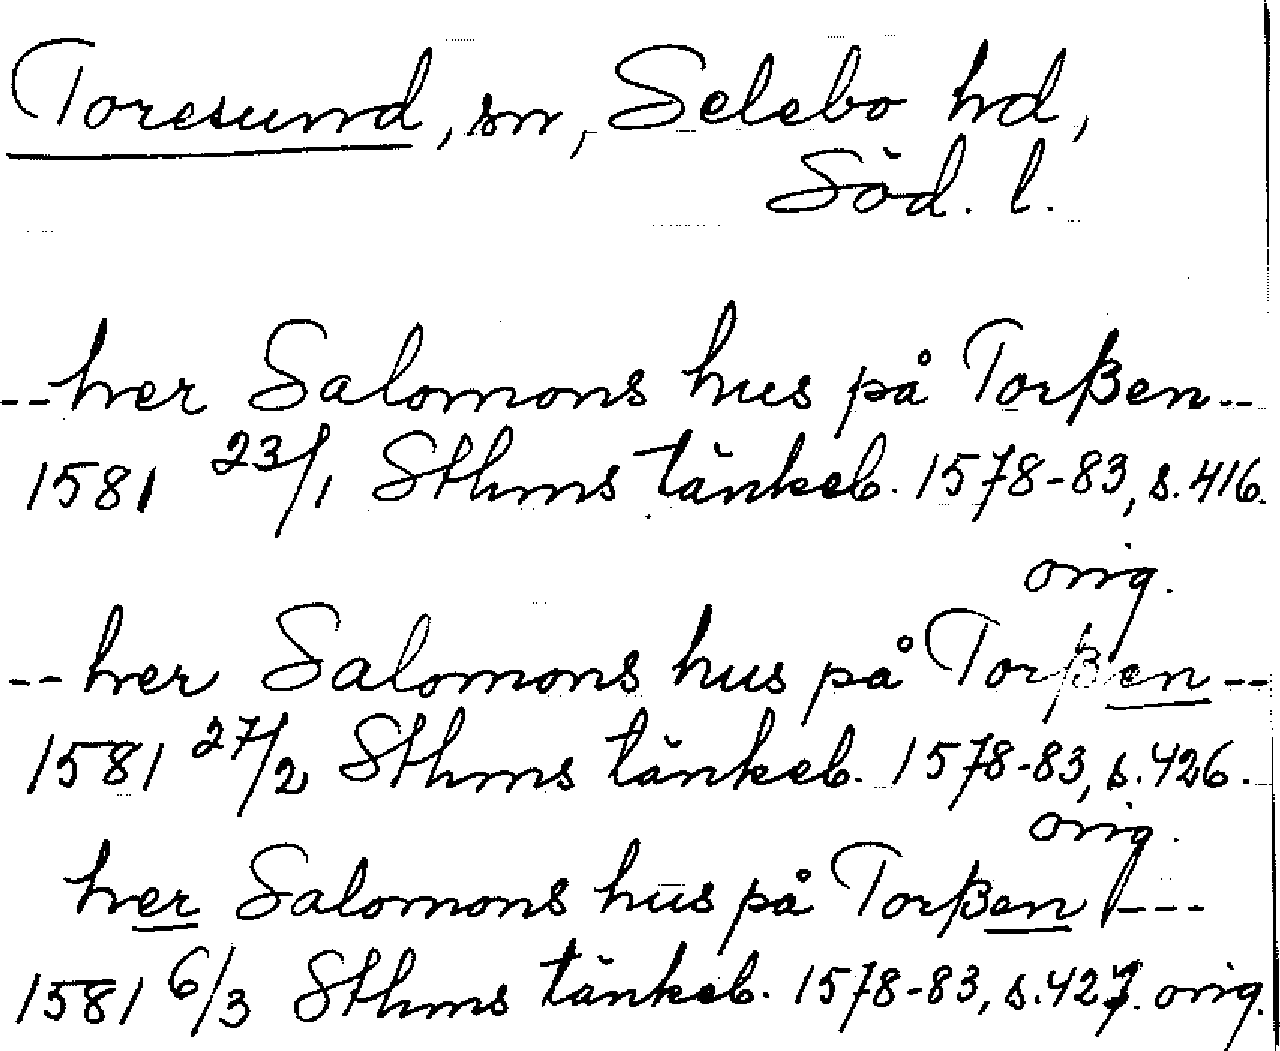 Toresund, sn, Selebo hd,
Söd. l.
-- her Salomons hus på Torßen --
1581 23/1 Sthms tänkeb. 1578-83, s. 416.
orig.
-- her Salomons hus på Torßen --
1581 27/2 Sthms tänkeb. 1578-83, s. 426.
orig.
her Salomons hus på Torßen ---
1581 6/3 Sthms tänkeb. 1578-83, s. 427. orig.